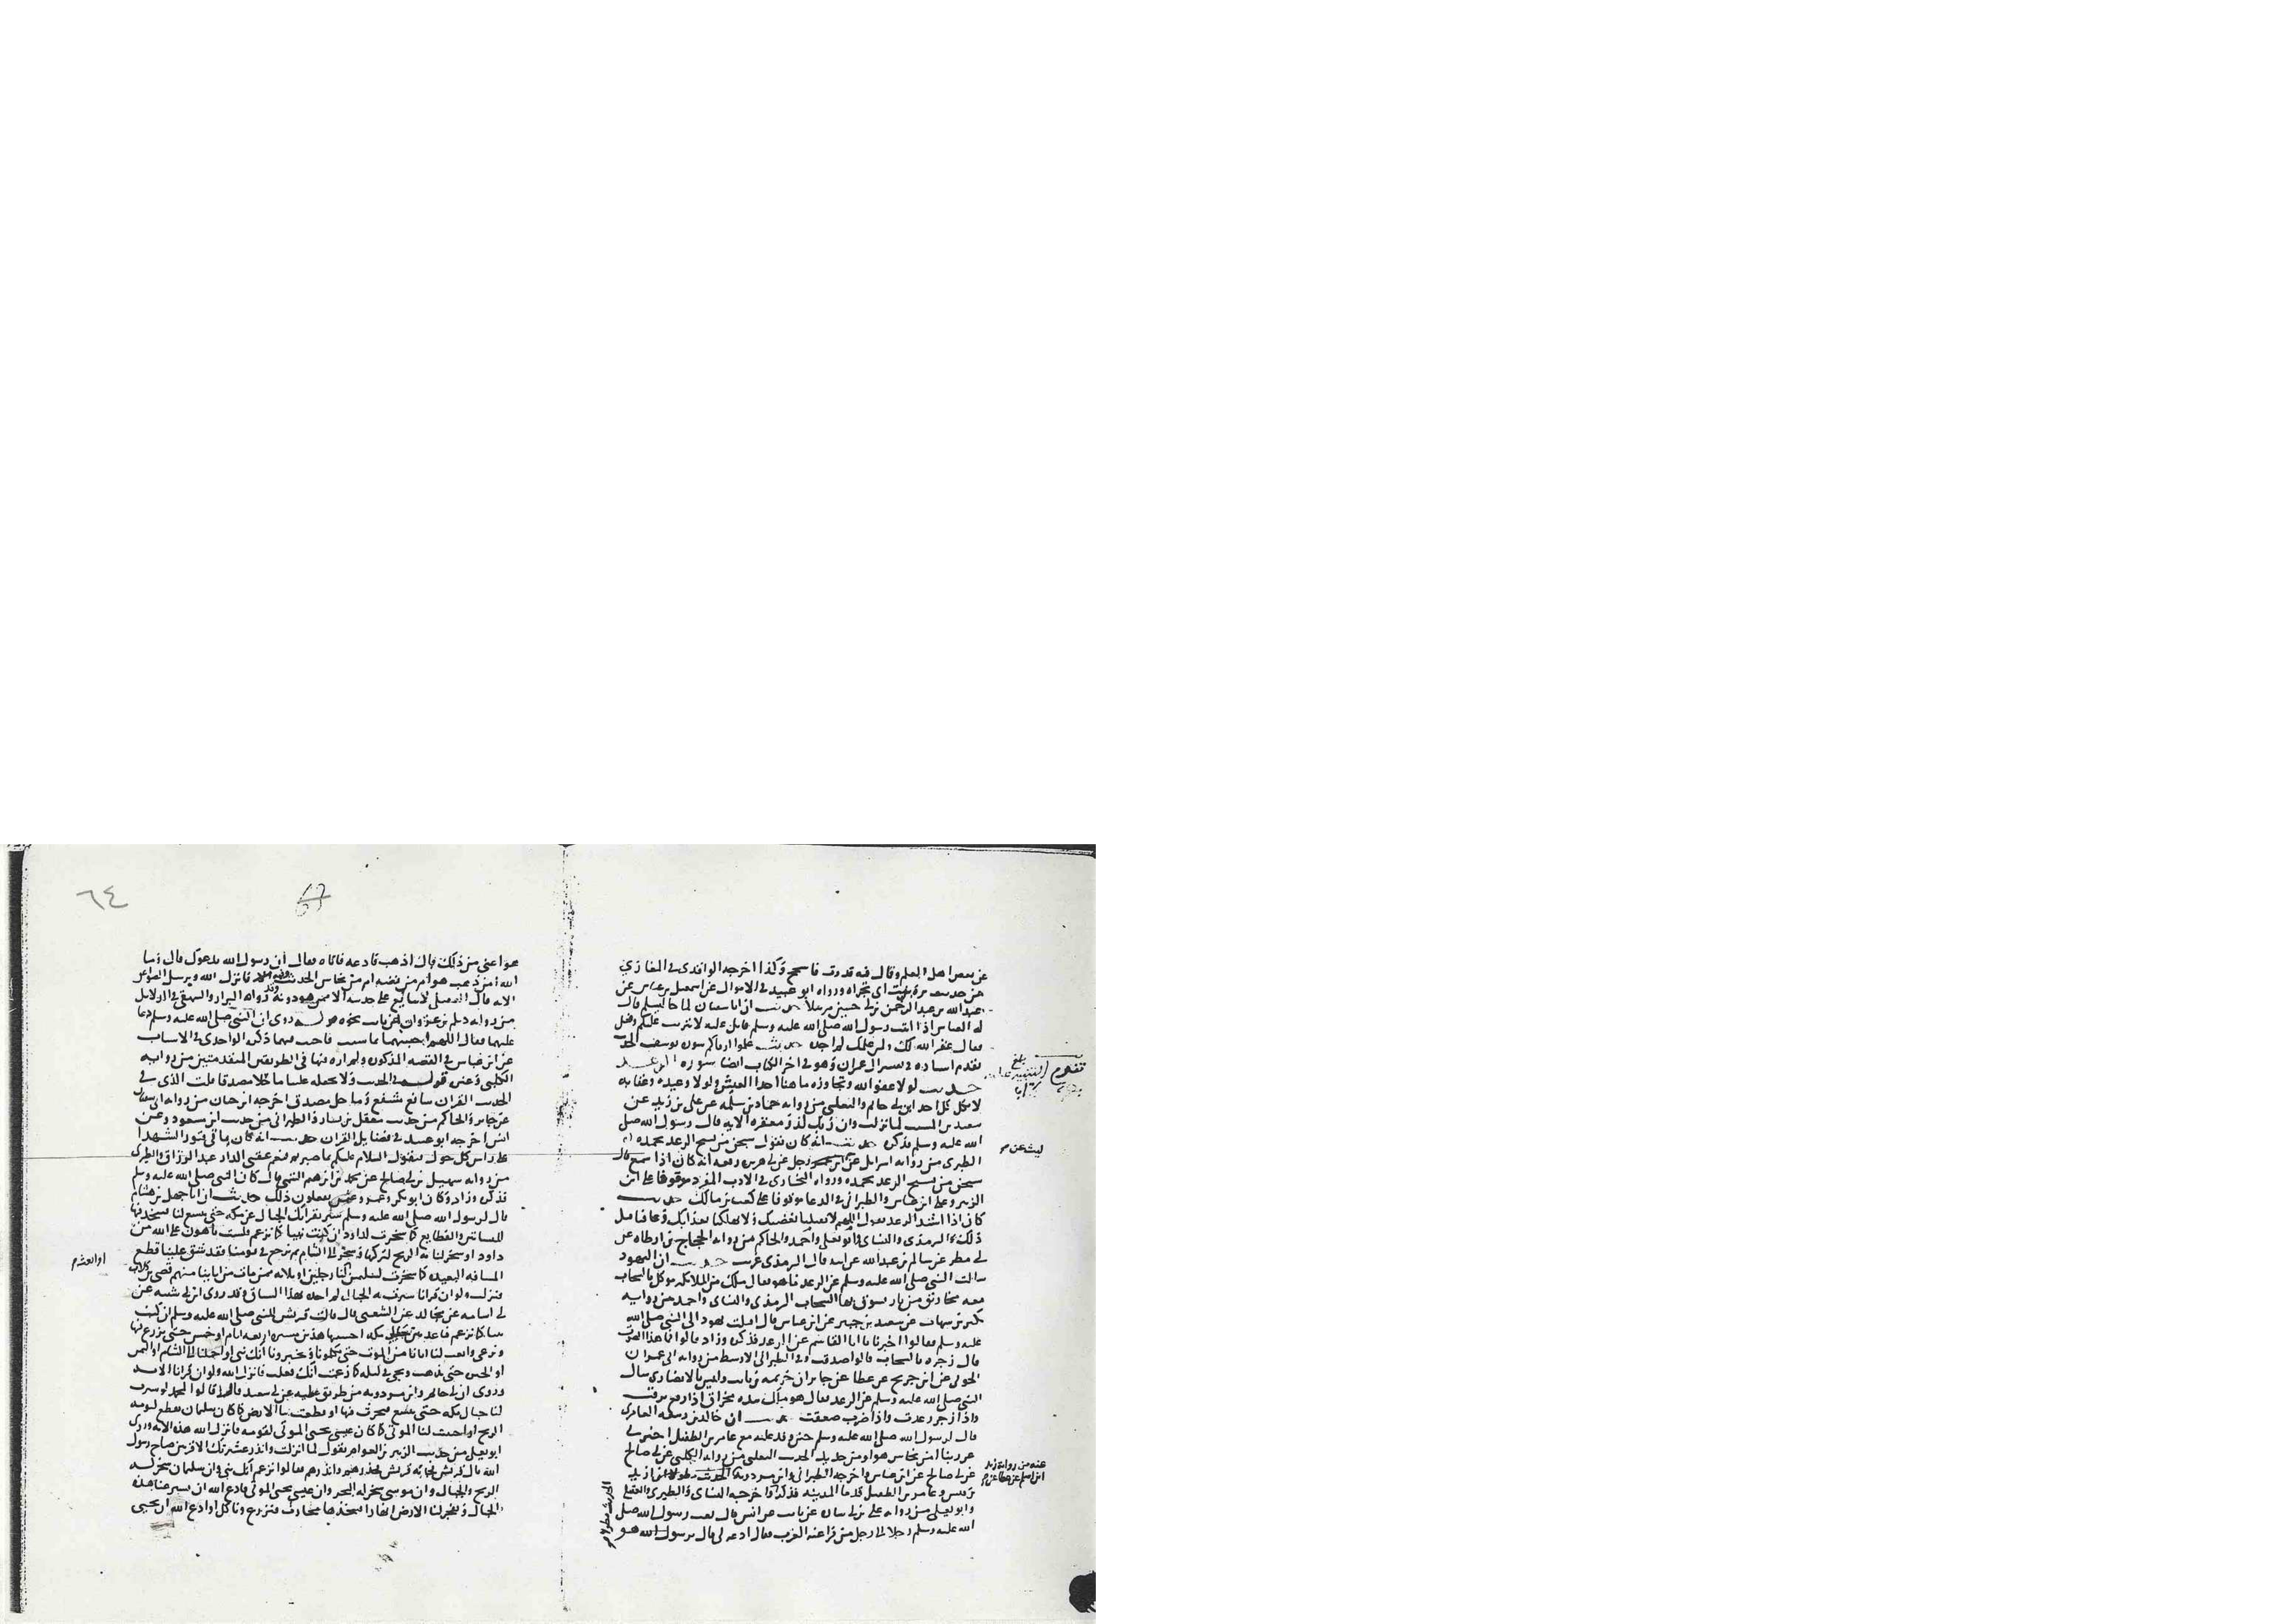 عن بعض اهل العلم وقال فيه قدوت فاسمح وكذا اخرجه الواقدى فى المغازي
من حديث برة بنت ابى تجراه ورواه ابو عبيد فى الاموال عن اسمعيل بن عياش عن
عبدالله بن عبدالرحمن بن ابى حسين مرسلا حديث ان اباسفيان لما جا ليسلم قال
له العباس اذا اتيت رسول الله صلى الله عليه وسلم فاتل عليه لا تثريب عليكم ففعل
فقال غفر الله لك ولمن علمك لم اجده حديث علموا ارقاكم سورة يوسف الحديث
تقدم اسناده فى تفسير ال عمران وهو فى اخر الكتاب ايضا سورة الرعد
حديث لولا عفو الله وتجاوزه ما هنا احدا العيش ولولا وعيده وعقابه
لاتكل كل احد ابن ابى حاتم والثعلبى من رواية حماد بن سلمه عن على بن زيد عن
سعيد بن المسيب لما نزلت وان ربك لذو مغفرة الاية قال رسول الله صلى
الله عليه وسلم فذكره حديث انه كان يقول سبحن من يسبح الرعد بحمده
الطبرى من رواية اسرايل عن رجل عن ابى هريره رفعه انه كان اذا سمع قال
سبحن من يسبح الرعد بحمده ورواه البخارى فى الادب المفرد موقوفا على ابن
الزبير وعلى ابن عباس والطبرانى فى الدعا موقوفا على كعب بن مالك حديث
كان اذا اشتد الرعد يقول اللهم لا تقتلنا بغضبك ولا تهلكنا بعذابك وعافنا قبل
ذلك الترمذى والنساى وابو يعلى واحمد والحاكم من رواية الحجاج بن ارطاه عن
ابى مطر عن سالم بن عبدالله عن ابيه قال الترمذى غريب حديث ان اليهود
سالت النبى صلى الله عليه وسلم عن الرعد ما هو فقال ملك من الملايكه موكل بالسحاب
معه مخاريق من نار يسوق بها السحاب الترمذى والنساى واحمد من رواية
بكير بن شهاب عن سعيد بن جبير عن ابن عباس قال اقبلت يهود الى النبى صلى الله
عليه وسلم فقالوا اخبرنا يا ابا القاسم عن الرعد فذكره وزاد قالوا فما هذا الصوت
قال زجره بالسحاب قالوا صدقت وفى الطبرانى الاوسط من رواية ابى عمران
الجونى عن ابن جريج عن عطا عن جابر ان خزيمة بن ثابت وليس بالانصارى سال
النبى صلى الله عليه وسلم عن الرعد فقال هو ملك بيده مخراق اذا رفع برقت
واذا زجر رعدت واذا ضرب صعقت حديث ان خالد بن ربيعه العامرى
قال لرسول الله صلى الله عليه وسلم حين وفد عليه مع عامر بن الطفيل اخبرنى
عن ربنا امن نحاس هو او من حديد الحديث الثعلبى من رواية الكلبى عن ابى صالح
عن ابى صالح عن ابن عباس واخرجه الطبرانى وابن مردويه الحديث مطولا ان اربد
بن قيس وعامر بن الطفيل قدما المدينه فذكره واخرجه النساى والطبرى والعقيلى
وابو يعلى من رواية على بن ابى سارة عن ثابت عن انس قال بعث رسول الله صلى
الله عليه وسلم رجلا الى رجل من فراعنة العرب فقال ادعه لى قال يرسول الله هو
ليث عن
عنه من رواية زيد
ابن اسلم عن عطا عن
٦٤
هو اعتى من ذلك قال اذهب فادعه فاتاه فقال ان رسول الله يدعوك قال وما
الله امن ذهب هو ام من فضه ام من نحاس الحديث فانزل الله ويرسل الصواعق
الاية قال العقيلى لا يتابع على حديثه الا ممن هو دونه ورواه البزار والبيهقى فى الدلايل
من رواية ديلم بن غزوان عن ثابت نحوه قوله روى ان النبى صلى الله عليه وسلم دعا
عليهما فقال اللهم احبسهما بما شيت فاجيب فيهما ذكره الواحدى فى الاسباب
عن ابن عباس فى القصه المذكوره ولم اره فيها فى الطريقين المتقدمتين من رواية
الكلبى وغيره قوله فى الحديث ولا تجعله علينا ماحلا مصدقا قلت الذى فى
الحديث القران شافع مشفع وماحل مصدق اخرجه ابن حبان من رواية ابى سفيان
عن جابر والحاكم من حديث معقل بن يسار والطبرانى من حديث ابن مسعود وعن
انس اخرجه ابو عبيد فى فضايل القران حديث انه كان ياتى قبور الشهدا
على راس كل حول فيقول السلام عليكم بما صبرتم فنعم عقبى الدار عبد الرزاق والطبرى
من رواية سهيل بن ابى صالح عن محمد بن ابرهيم التيمى قال كان النبى صلى الله عليه وسلم
فذكره وزاد وكان ابو بكر وعمر وعثمن يفعلون ذلك حديث ان اباجهل بن هشام
قال لرسول الله صلى الله عليه وسلم سير بقرانك الجبال عن مكه حتى تتسع لنا فنتخذ فيها
البساتين والقطايع كما سخرت لداود ان كنت نبيا كما تزعم فلست باهون على الله من
داود او سخر لنا به الريح لنركبها ونتجر الى الشام ثم نرجع فى يومنا فقد شق علينا قطع
المسافه البعيده كما سخرت لسليمن لنا رجلين او ثلاثه ممن مات من اباينا منهم قصى بن كلاب
فنزلت ولو ان قرانا سيرت به الجبال لم اجده بهذا السياق وقد روى ابن ابى شيبه عن
ابى اسامه عن مجالد عن الشعبى قال قالت قريش للنبى صلى الله عليه وسلم ان كنت
نبيا كما تزعم فباعد جبلى مكه اخشبيها هذين مسيرة اربعه ايام او خمس حتى نزرع فيها
ونرعى وابعث لنا ابانا من الموت حتى يكلمونا ويخبرونا انك نبى او احملنا الى الشام او اليمن
او الحيره حتى نذهب ونجى فى ليله كما زعمت انك فعلت فانزل الله ولو ان قرانا الاية
وروى ابن ابى حاتم وابن مردويه من طريق عطيه عن ابى سعيد قال قالوا لمحمد لو سيرت
لنا جبال مكه حتى تتسع فنحرث فيها او قطعت بنا الارض كما كان سليمان يقطع لقومه
بالريح او احييت لنا الموتى كما كان عيسى يحيى الموتى لقومه فانزل الله هذه الاية وروى
ابو يعلى من حديث الزبير بن العوام يقول لما نزلت وانذر عشيرتك الاقربين صاح رسول
الله يال قريش فجاته قريش فحذرهم وانذرهم فقالوا تزعم انك نبى وان سليمان سخر له
الريح والجبال وان موسى سخر له البحر وان عيسى يحيى الموتى فادع الله ان يسير عنا هذه
الجبال ويفجر لنا الارض انهارا فنتخذها محارث فنزرع وناكل او ادع الله ان يحيى